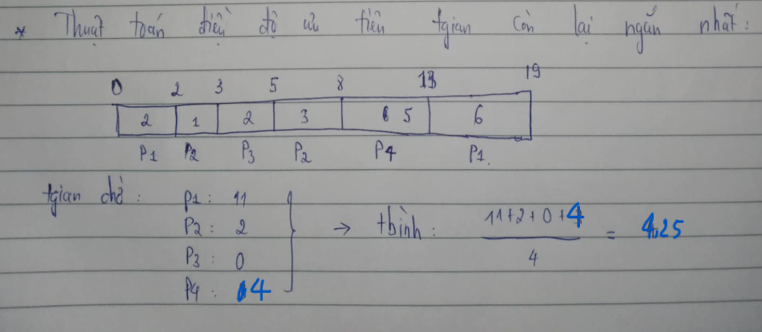 * Thuật toán điều độ ưu tiên tgian còn lại ngắn nhất:
0 2 3 5 8 13 19
2 1 2 3 5 6
P1 P2 P3 P2 P4 P1
tgian chờ: P1: 11
P2: 2
P3: 0
P4: 4
→ tbình: 11+2+0+4 / 4 = 4,25